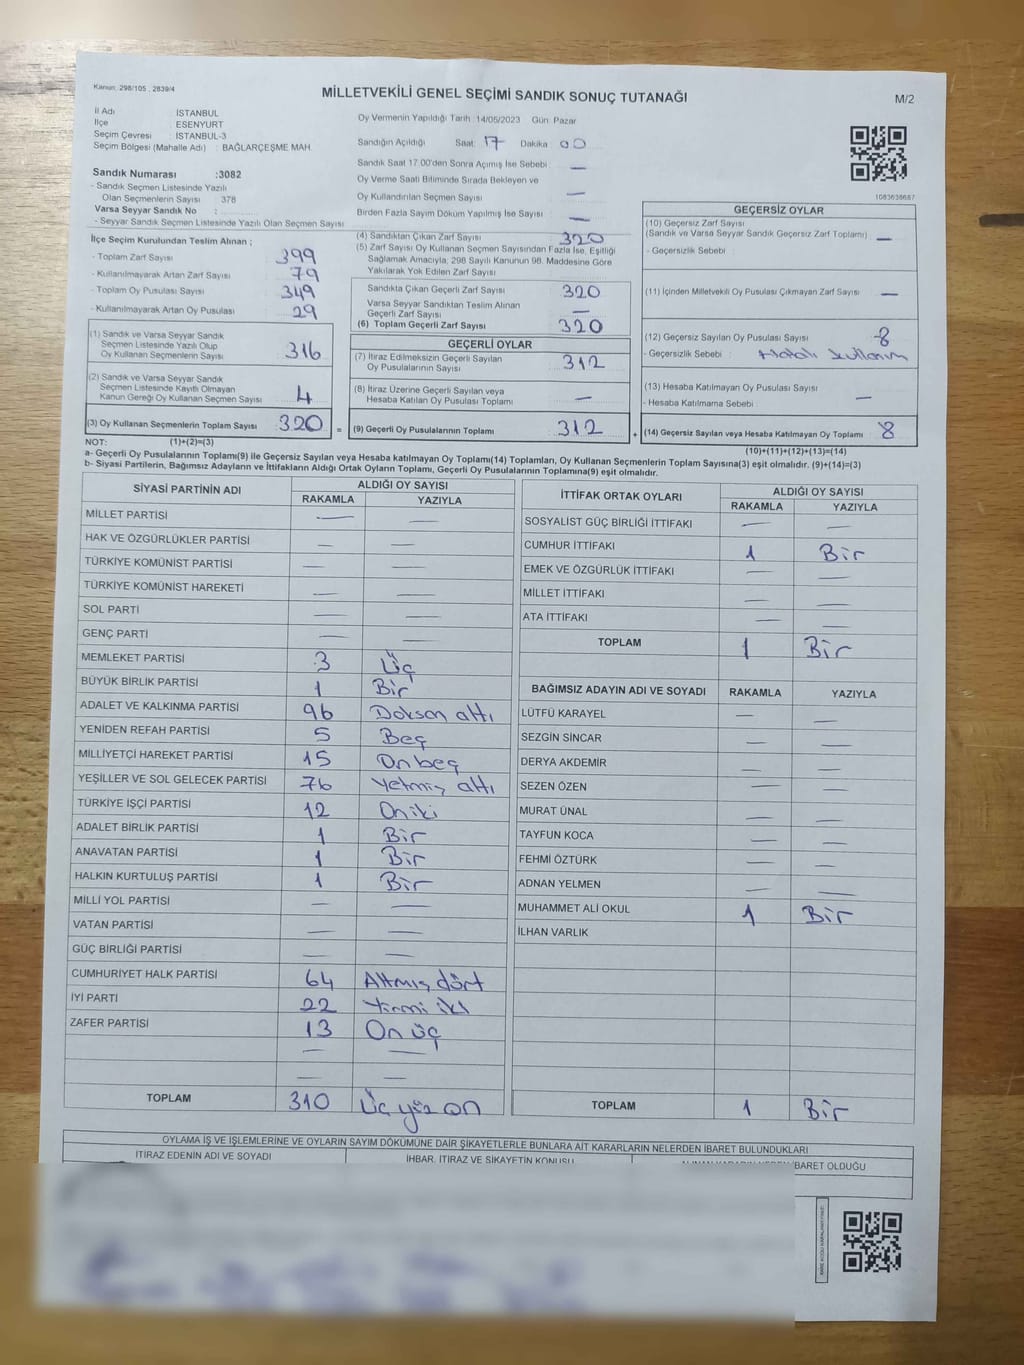 Kanun: 298/105 , 2839/4
MİLLETVEKİLİ GENEL SEÇİMİ SANDIK SONUÇ TUTANAĞI
M/2
İl Adı : İSTANBUL
İlçe : ESENYURT
Seçim Çevresi : İSTANBUL-3
Seçim Bölgesi (Mahalle Adı) : BAĞLARÇEŞME MAH.
Sandık Numarası :3082
- Sandık Seçmen Listesinde Yazılı
Olan Seçmenlerin Sayısı : 378
Varsa Seyyar Sandık No :
- Seyyar Sandık Seçmen Listesinde Yazılı Olan Seçmen Sayısı
Oy Vermenin Yapıldığı Tarih :14/05/2023 Gün: Pazar
Sandığın Açıldığı Saat: 17 Dakika 00
Sandık Saat 17.00'den Sonra Açılmış İse Sebebi : —
Oy Verme Saati Bitiminde Sırada Bekleyen ve
Oy Kullandırılan Seçmen Sayısı —
Birden Fazla Sayım Döküm Yapılmış İse Sayısı —
1083638687
İlçe Seçim Kurulundan Teslim Alınan ;
- Toplam Zarf Sayısı : 399
- Kullanılmayarak Artan Zarf Sayısı : 79
- Toplam Oy Pusulası Sayısı : 349
- Kullanılmayarak Artan Oy Pusulası : 29
(1) Sandık ve Varsa Seyyar Sandık
Seçmen Listesinde Yazılı Olup
Oy Kullanan Seçmenlerin Sayısı : 316
(2) Sandık ve Varsa Seyyar Sandık
Seçmen Listesinde Kayıtlı Olmayan
Kanun Gereği Oy Kullanan Seçmen Sayısı : 4
(3) Oy Kullanan Seçmenlerin Toplam Sayısı : 320 =
(4) Sandıktan Çıkan Zarf Sayısı : 320
(5) Zarf Sayısı Oy Kullanan Seçmen Sayısından Fazla İse, Eşitliği
Sağlamak Amacıyla, 298 Sayılı Kanunun 98. Maddesine Göre
Yakılarak Yok Edilen Zarf Sayısı :
Sandıkta Çıkan Geçerli Zarf Sayısı : 320
Varsa Seyyar Sandıktan Teslim Alınan
Geçerli Zarf Sayısı : —
(6) Toplam Geçerli Zarf Sayısı : 320
GEÇERLİ OYLAR
(7) İtiraz Edilmeksizin Geçerli Sayılan
Oy Pusulalarının Sayısı : 312
(8) İtiraz Üzerine Geçerli Sayılan veya
Hesaba Katılan Oy Pusulası Toplamı : —
(9) Geçerli Oy Pusulalarının Toplamı : 312 +
GEÇERSİZ OYLAR
(10) Geçersiz Zarf Sayısı
(Sandık ve Varsa Seyyar Sandık Geçersiz Zarf Toplamı) : —
- Geçersizlik Sebebi :
(11) İçinden Milletvekili Oy Pusulası Çıkmayan Zarf Sayısı : —
(12) Geçersiz Sayılan Oy Pusulası Sayısı : 8
- Geçersizlik Sebebi : Hatalı kullanım
(13) Hesaba Katılmayan Oy Pusulası Sayısı :
- Hesaba Katılmama Sebebi : —
(14) Geçersiz Sayılan veya Hesaba Katılmayan Oy Toplamı : 8
NOT: (1)+(2)=(3) (10)+(11)+(12)+(13)=(14)
a- Geçerli Oy Pusulalarının Toplamı(9) ile Geçersiz Sayılan veya Hesaba katılmayan Oy Toplamı(14) Toplamları, Oy Kullanan Seçmenlerin Toplam Sayısına(3) eşit olmalıdır. (9)+(14)=(3)
b- Siyasi Partilerin, Bağımsız Adayların ve İttifakların Aldığı Ortak Oyların Toplamı, Geçerli Oy Pusulalarının Toplamına(9) eşit olmalıdır.
SİYASİ PARTİNİN ADI ALDIĞI OY SAYISI
RAKAMLA YAZIYLA
MİLLET PARTİSİ — —
HAK VE ÖZGÜRLÜKLER PARTİSİ — —
TÜRKİYE KOMÜNİST PARTİSİ — —
TÜRKİYE KOMÜNİST HAREKETİ — —
SOL PARTİ — —
GENÇ PARTİ — —
MEMLEKET PARTİSİ 3 Üç
BÜYÜK BİRLİK PARTİSİ 1 Bir
ADALET VE KALKINMA PARTİSİ 96 Doksan altı
YENİDEN REFAH PARTİSİ 5 Beş
MİLLİYETÇİ HAREKET PARTİSİ 15 On beş
YEŞİLLER VE SOL GELECEK PARTİSİ 76 Yetmiş altı
TÜRKİYE İŞÇİ PARTİSİ 12 On iki
ADALET BİRLİK PARTİSİ 1 Bir
ANAVATAN PARTİSİ 1 Bir
HALKIN KURTULUŞ PARTİSİ 1 Bir
MİLLİ YOL PARTİSİ — —
VATAN PARTİSİ — —
GÜÇ BİRLİĞİ PARTİSİ — —
CUMHURİYET HALK PARTİSİ 64 Altmış dört
İYİ PARTİ 22 Yirmi iki
ZAFER PARTİSİ 13 On üç
— —
— —
TOPLAM 310 Üç yüz on
İTTİFAK ORTAK OYLARI ALDIĞI OY SAYISI
RAKAMLA YAZIYLA
SOSYALİST GÜÇ BİRLİĞİ İTTİFAKI — —
CUMHUR İTTİFAKI 1 Bir
EMEK VE ÖZGÜRLÜK İTTİFAKI — —
MİLLET İTTİFAKI — —
ATA İTTİFAKI — —
TOPLAM 1 Bir
BAĞIMSIZ ADAYIN ADI VE SOYADI RAKAMLA YAZIYLA
LÜTFÜ KARAYEL — —
SEZGİN SİNCAR — —
DERYA AKDEMİR — —
SEZEN ÖZEN — —
MURAT ÜNAL — —
TAYFUN KOCA — —
FEHMİ ÖZTÜRK — —
ADNAN YELMEN — —
MUHAMMET ALİ OKUL 1 Bir
İLHAN VARLIK
TOPLAM 1 Bir
OYLAMA İŞ VE İŞLEMLERİNE VE OYLARIN SAYIM DÖKÜMÜNE DAİR ŞİKAYETLERLE BUNLARA AİT KARARLARIN NELERDEN İBARET BULUNDUKLARI
İTİRAZ EDENİN ADI VE SOYADI İHBAR, İTİRAZ VE ŞİKAYETİN KONUSU İBARET OLDUĞU